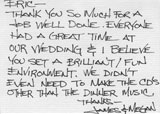 ERIC—
THANK YOU SO MUCH FOR A
JOB WELL DONE. EVERYONE
HAD A GREAT TIME AT
OUR WEDDING & I BELIEVE
YOU SET A BRILLIANT/FUN
ENVIRONMENT. WE DIDN'T
EVEN NEED TO MAKE THE CD'S
OTHER THAN THE DINNER MUSIC.
THANKS—
JAMES & MEGAN